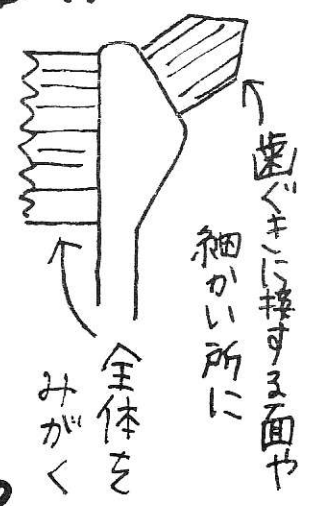 歯ぐきに接する面や
細かい所に
全体を
みがく